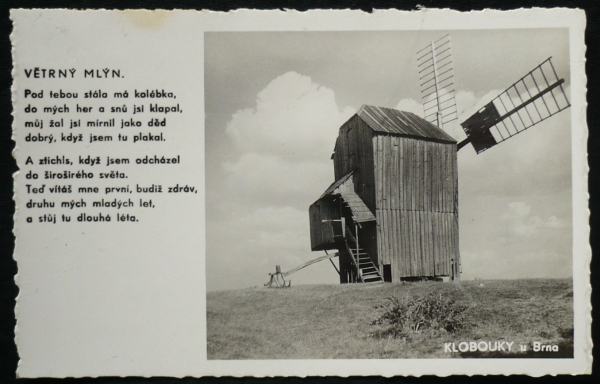 VĚTRNÝ MLÝN.
Pod tebou stála má kolébka,
do mých her a snů jsi klapal,
můj žal jsi mírnil jako děd
dobrý, když jsem tu plakal.
A ztichls, když jsem odcházel
do široširého světa.
Teď vítáš mne první, budiž zdráv,
druhu mých mladých let,
a stůj tu dlouhá léta.
KLOBOUKY u Brna